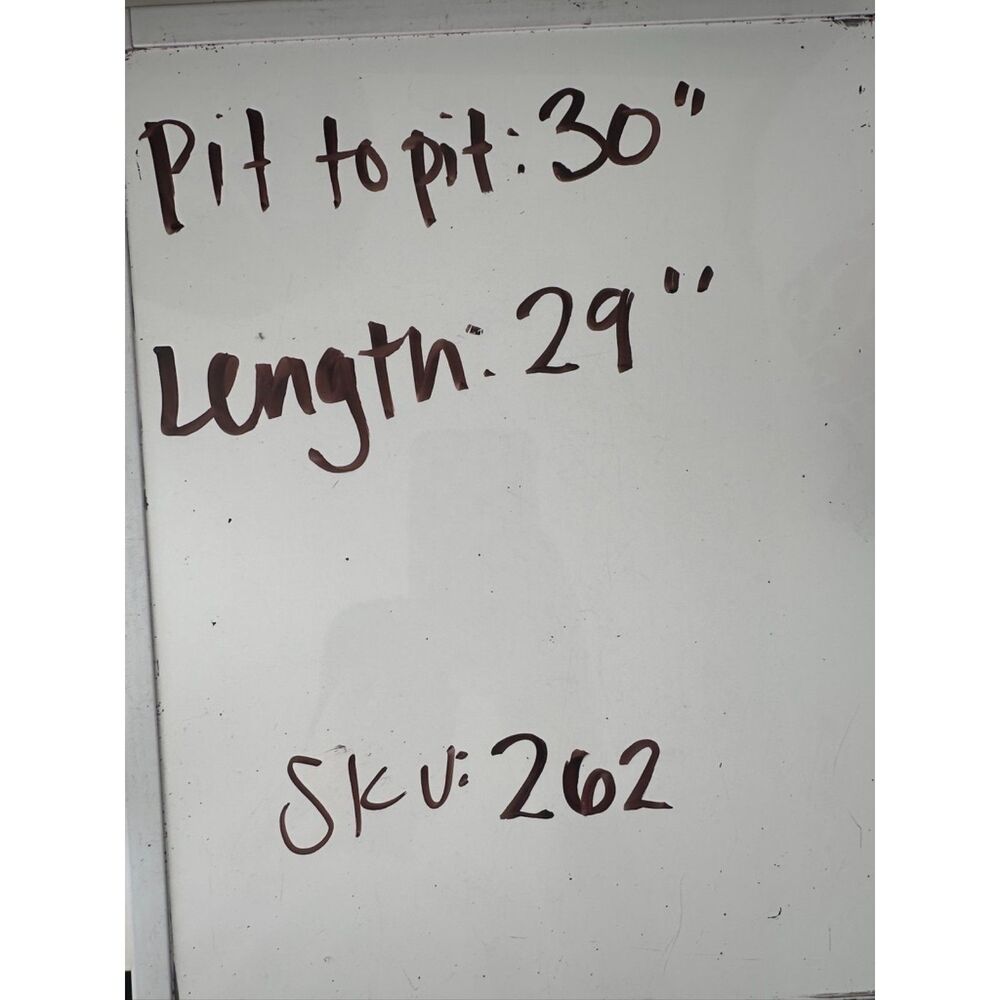 Pit to pit: 30"
Length: 29"
SKU: 262